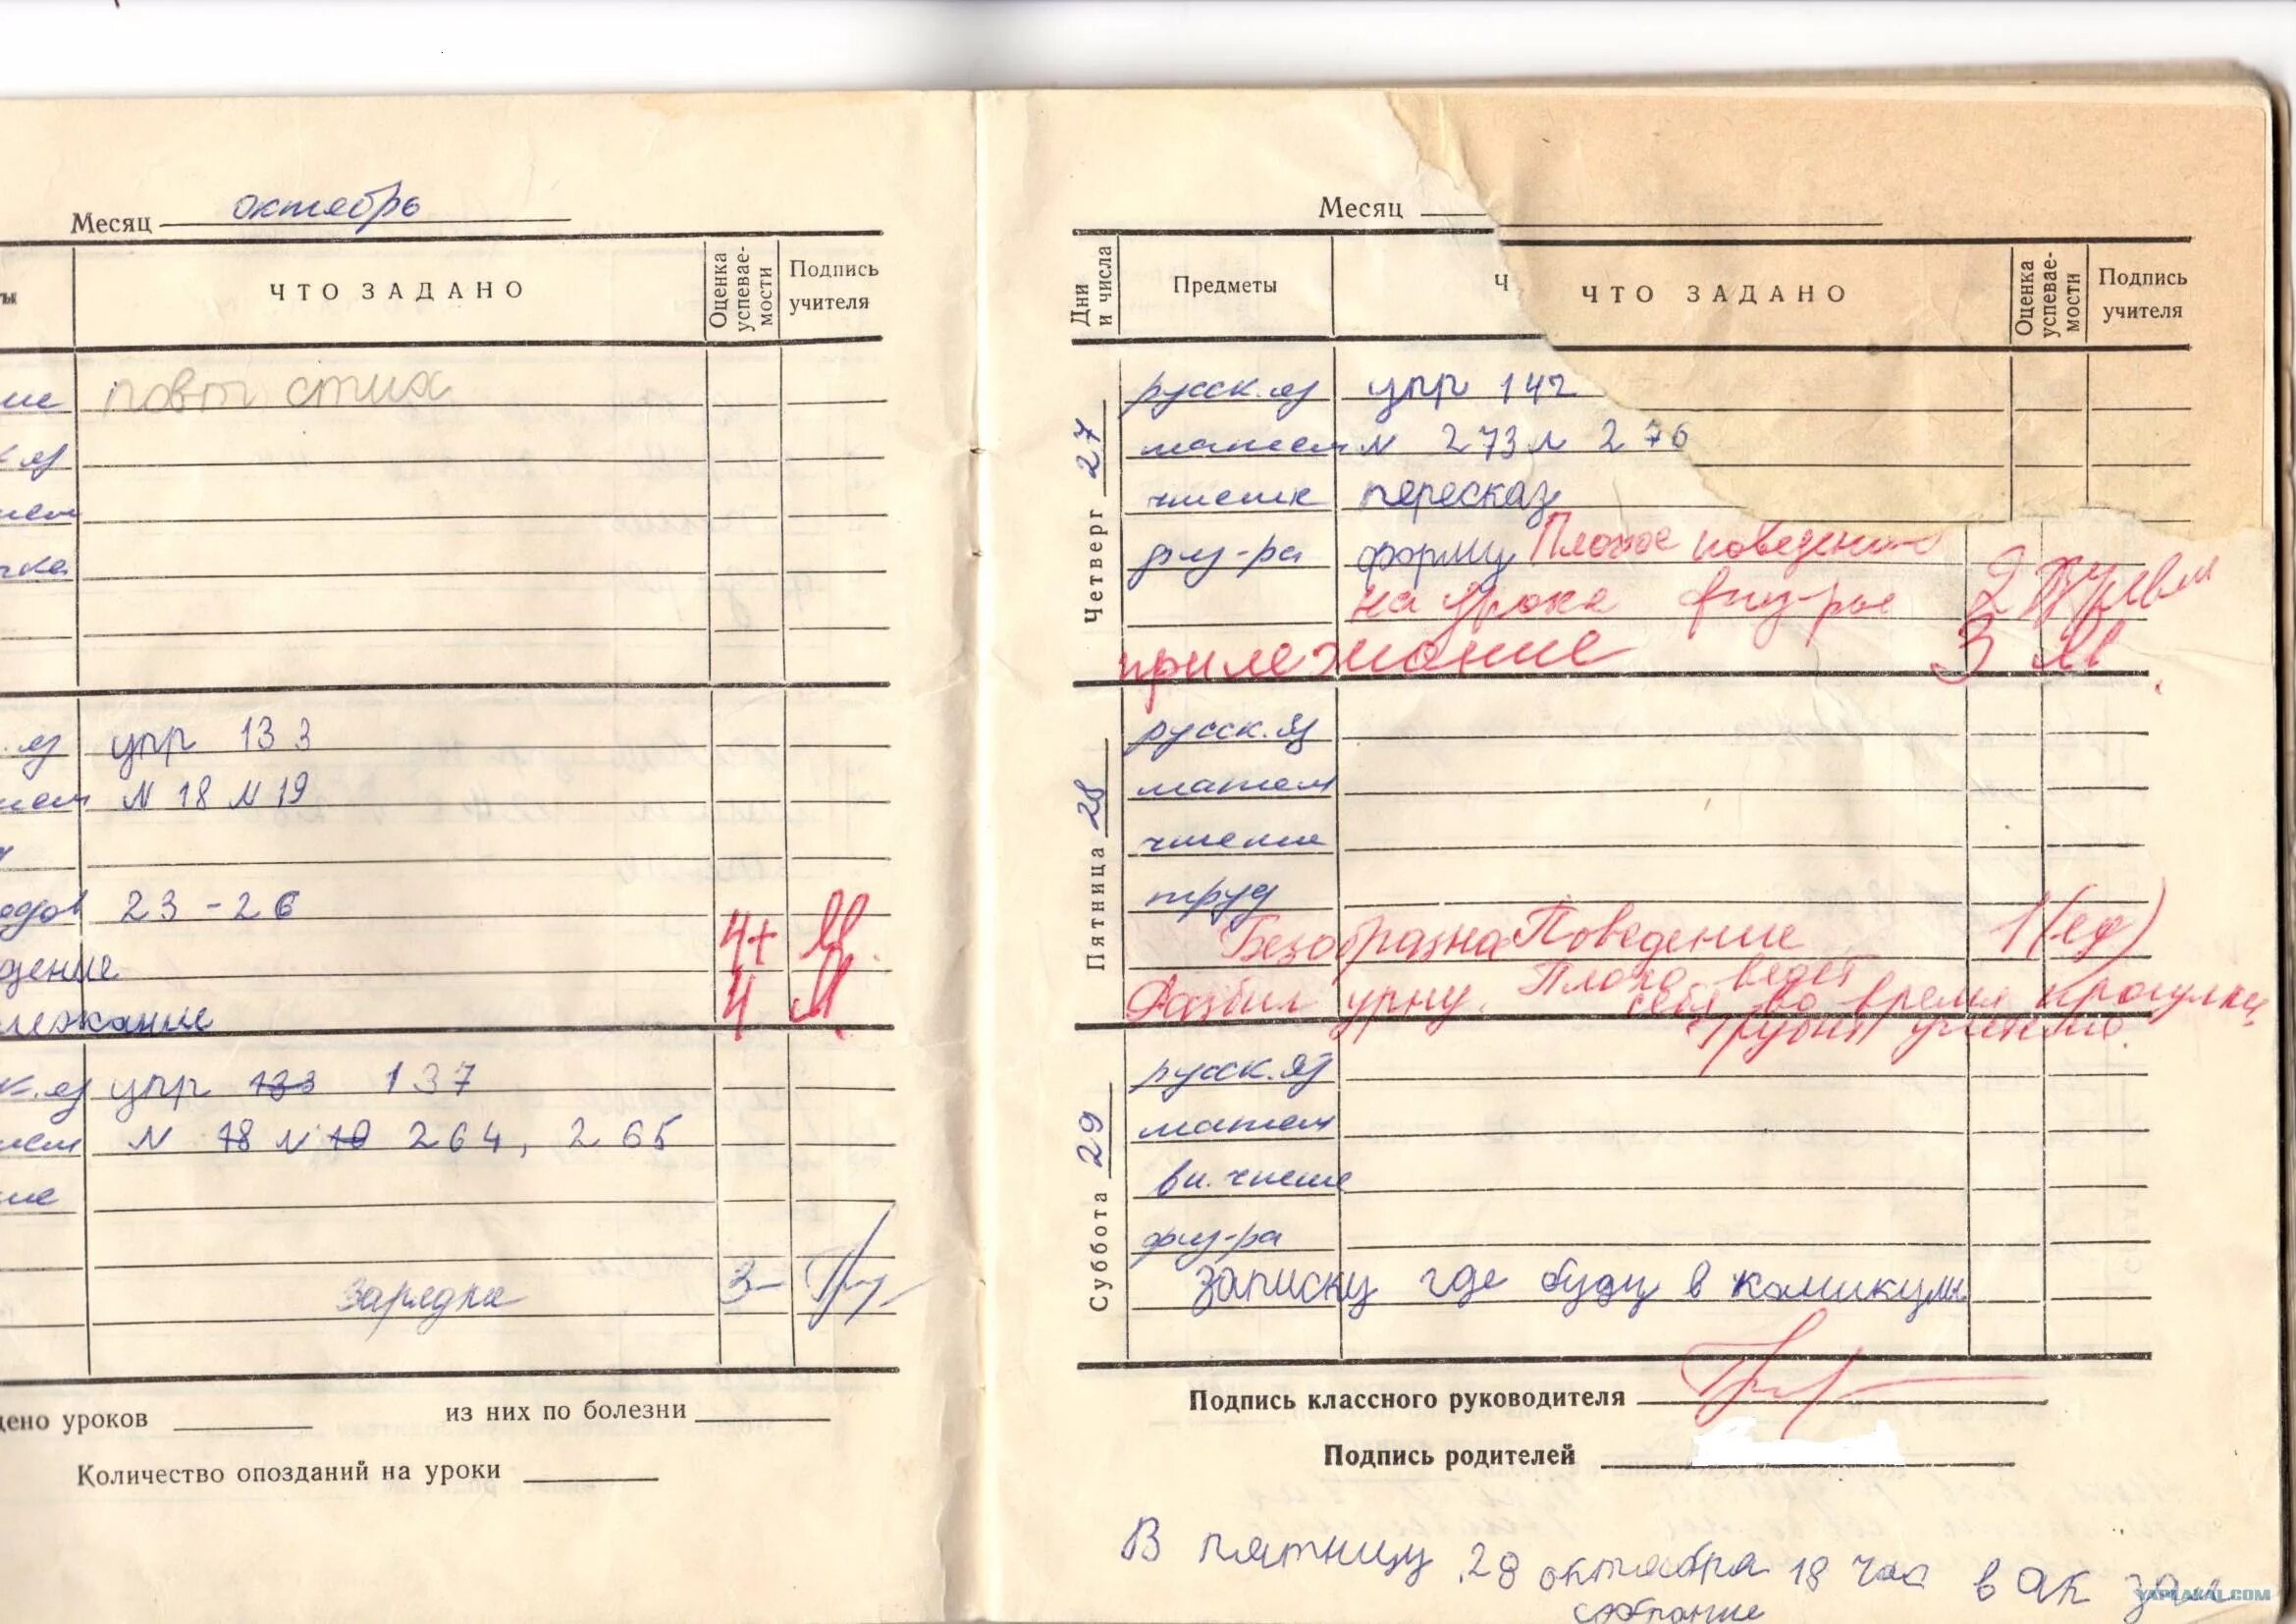 Месяц октябрь
ты
ЧТО ЗАДАНО
Оценка успевае-мости
Подпись учителя
ие повт стих
к яз
чка
яз упр 133
N 18 N 19
23 - 26
дение 4+
лежание 4
к.яз упр 133 137
N 18 N 19 264, 265
ие
зарядка 3-
дено уроков из них по болезни
Количество опозданий на уроки
Месяц
Дни и числа
Предметы
Ч
ЧТО ЗАДАНО
Оценка успевае-мости
Подпись учителя
Четверг 27
русск.яз упр 142
матем N 273 N 276
чтение пересказ
физ-ра форму Плохое поведение
на уроке физ-ры 2
прилежание 3
Пятница 28
русск.яз
матем
чтение
труд
Безобразна Поведение 1 (ед)
Разбил урну. Плохо ведет
себя во время прогулки,
грубит учителю.
Суббота 29
русск.яз
матем
вн. чтение
физ-ра
записку где буду в каникулы
Подпись классного руководителя
Подпись родителей
В пятницу 28 октября 18 час в ак зал
собрание
YAPLAKAL.COM